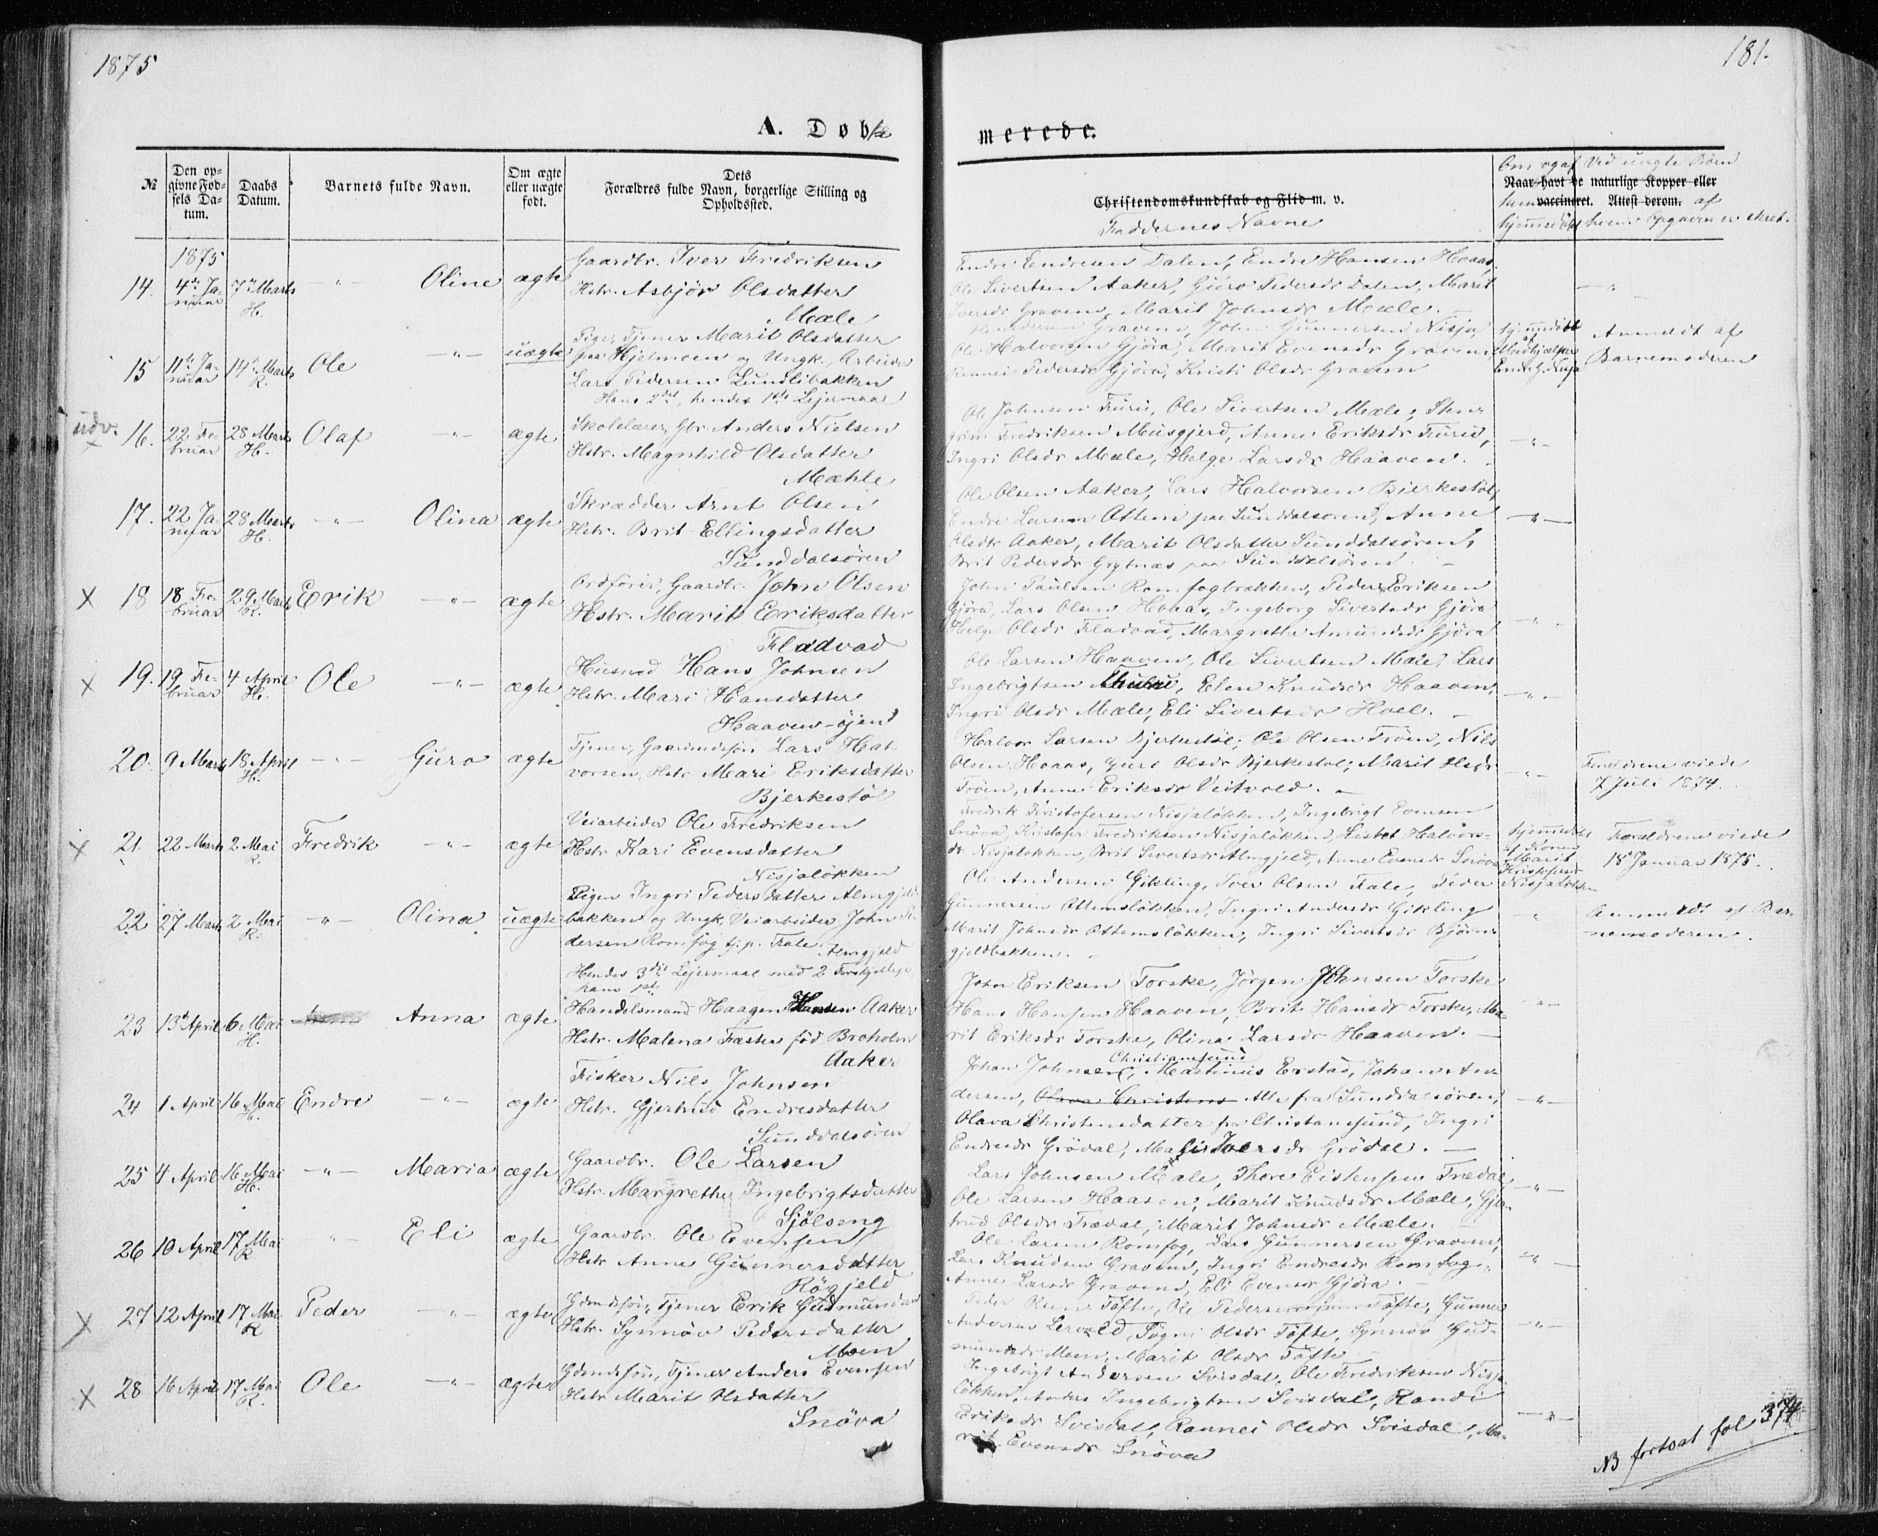 1875
181.
A. Døbte
merede.
№
Den opgivne Fødsels Datum.
Daabs Datum.
Barnets fulde Navn.
Om ægte eller uægte født.
Dets Forældres fulde Navn, borgerlige Stilling og Opholdssted.
Christendomskundskab og Flid m. v.
Faddernes Navne
Naar havt de naturlige Kopper eller vaccineret. Attest derom.
1875
14. 4de Januar 7de Marts H. -"- Oline ægte
Gaardbr. Iver Fredriksen
Hstr. Asbjør Olsdatter
Mæle
Endre Endresen Dalen, Endre Hansen Hoaas,
Ole Sivertsen Aaker, Guro Pedersdr Dalen, Marit
Iversdr Gravem, Marit Johnsdr Mæle. -
-"-
15 11te Januar 14de Marts R. Ole -"- uægte
Pige, Tjener Marit Olsdatter
paa Hjelmoen og Ungk., Arbeider
Lars Pedersen Lundlibakken
Hans 2det, hendes 1ste Leiermaal
Gravem, John Gunnersen Nisja,
Ole Halvorsen Gjøra, Marit Evensdr Gravem
Rønnei Pedersdr Gjøra, Kristi Olsdr Gravem
hjemmedøbt af Medhjælper Endr. G. Nisja
Anmeldt af
Barnemoderen
udv.
x
16. 22 Februar 28 Marts H. Olaf -"- ægte
Skolelærer, Gbr. Anders Nielsen
Hstr. Magnhild Olsdatter
Mæhle
Ole Johnsen Furu, Ole Sivertsen Mæle, Sten-
grim Fredriksen Musgjerd, Anne Eriksdr Furu,
Ingri Olsdr Mæle, Helge Larsdr Haaven. -
-"-
17. 22 Januar 28 Marts H. -"- Olina ægte
Skrædder Arnt Olsen
Hstr. Brit Ellingsdatter
Sunddalsøren
Ole Olsen Aaker, Lars Halvorsen Bjerkestøl,
Endre Larsen Ottem paa Sunddalsøren, Anne
Olsdtr Aaker, Marit Olsdatter Sunddalsøren,
Brit Pedersdr Grytnæs paa Sunddalsøren. -
-"-
x 18 18 Februar 29 Marts R. Erik -"- ægte
Ordfører, Gaardbr. John Olsen
Hstr. Marit Eriksdatter
Fladvad
John Paulsen Romfogbakken, Peder Eriksen
Gjøra, Lars Olsen Hoaas, Ingeborg Sivertsdr Gjøra
Helge Olsdr Fladvad, Margrethe Amundsdr Gjøra
-"-
x 19. 19 Februar 4 April H. Ole -"- ægte.
Husmd Hans Johnsen
Hstr. Mari Hansdatter
Haaven-ejend
Ole Larsen Haaven, Ole Sivertsen Mæle, Lars
Ingebrigtsen, Elen Knudsdr Haaven,
Ingri Olsdr Mæle, Eli Sivertsdr Hoel. -
-"-
20. 9 Marts 18 April H. -"- Guro ægte
Tjener, Gaardmdssøn Lars Hal-
vorsen, Hstr. Mari Eriksdatter
Bjerkestøl
Halvor Larsen Bjerkestøl, Ole Olsen Trøen, Nils
Olsen Hoaas, Guro Olsdr Bjerkestøl, Marit Olsdr
Trøen, Anne Eriksdr Veitvold. -
-"-
Forældrene viede
7 Juli 1874.
x 21. 22 Marts 2 Mai R. Fredrik -"- ægte
Veiarbeider Ole Fredriksen
Hstr Kari Evensdatter
Nisjaløkken
Fredrik Kristofersen Nisjaløkken, Ingebrigt Evensen
Snøva, Kristofer Fredriksen Nisjaløkken, Halvors-
dr Nisjaløkken, Brit Sivertsdr Almgjeld, Anne Evensdr Snøva
hjemmedøbt af Konen Marit Kristofersdr Nisjaløkken
Forældrene viede
18 Januar 1875.
22 27 Marts 2 Mai R. -"- Olina uægte
Pigen Ingri Pedersdatter Almgjeld-
bakken og Ungk. Veiarbeider John Pe-
dersen Romfog tj. p. Fale
Almgjeld
Hendes 3die Leiermaal med 2 Forskjellige,
hans 1ste
Ole Andersen Gikling, Iver Olsen Fale, Peder
Gunnersen Ottemsløkken, Ingri Andersdr Gikling
Marit Johnsdr Ottemsløkken, Ingri Sivertsdr Bjørn-
gjeldbakken. -
"
Anmeldt af Bar-
nemoderen.
23 13de April 6 Mai H. Anna ægte
Handelsmand Haagen Hansen Aaker
Hstr. Malena Fæster fød Broholm
Aaker
John Eriksen Torske, Jørgen Johnsen Torske
Hans Hansen Haaven, Brit Hansdr Torske, Ma-
rit Eriksdr Torske, Olina Larsdr Haaven. -
-"-
24 1 April 16 Mai H. Endre -"- ægte
Fisker Nils Johnsen
Hstr. Gjertrud Endresdatter
Sunddalsøren
Christiansund
Johan Johnsen, Martinus Erstad, Johan An-
dersen, Olava Christens Alle fra Sunddalsøren,
Olava Christensdatter fra Christiansund, Ingri
Endresdr Grødal, Mali Iversdr Grødal. -
-"-
25 4 April 16 Mai H. -"- Maria ægte
Gaardbr. Ole Larsen
Hstr. Margrethe Ingebrigtsdatter
Sjølseng
Lars Johnsen Mæle, Thore Eistensen Trædal,
Ole Larsen Haasen, Marit Knudsdr Mæle, Gjer-
trud Olsdr Trædal, Marit Johnsdr Mæle. -
-"-
26 10 April 17 Mai R " Eli ægte
Gaardbr. Ole Evensen
Hstr Anne Gunnersdatter
Røgjeld
Ole Larsen Romfog, Lars Gunnersen Gravem,
Lars Knudsen Gravem, Ingri Endresdr Romfog,
Anne Larsdr Gravem, Eli Evensdr Gjøra. -
-"-
x 27 12 April 17 Mai R Peder -"- ægte
Gdmdssøn, Tjener Erik Gudmundsen
Hstr. Synnøv Pedersdatter
Moen
Peder Olsen Tøfte, Ole Pedersen Tøfte, Gunner
Andersen Lervold, Søgni Olsdr Tøfte, Synnøv Gud-
mundsdr Moen, Marit Olsdr Tøfte
-"-
x 28 16 April 17 Mai R. Ole -"- ægte
Gdmdssøn, Tjener Anders Evensen
Hstr Marit Olsdatter
Snøva
Ingebrigt Andersen Svisdal, Ole Fredriksen Nisja-
løkken, Anders Ingebrigtsen Svisdal, Randi
Eriksdr Svisdal, Rønnei Olsdr Svisdal, Ma-
rit Evensdr Snøva
-"-
NB fortsat fol 374